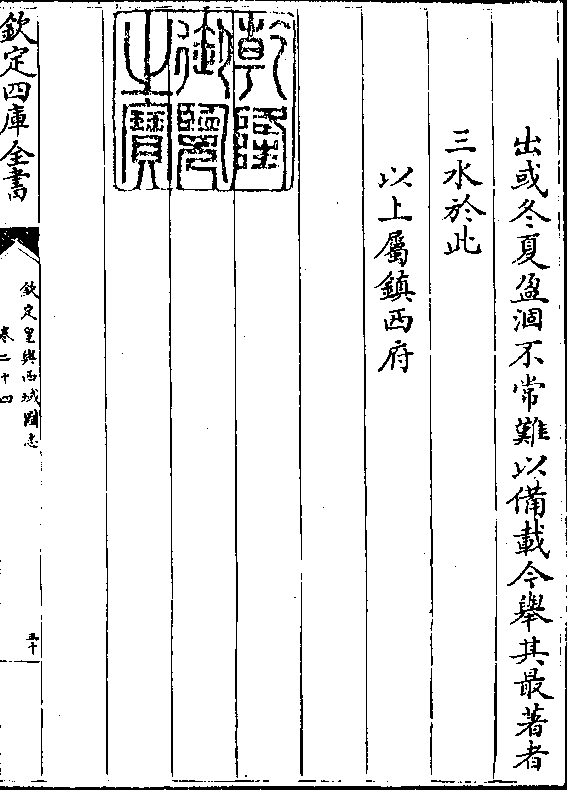 出或冬夏盈涸不常難以備載今舉其最著者
三水於此
以上屬鎮西府
乾隆
御覽
之寶
欽定四庫全書
欽定皇輿西域圖志
卷二十四
五十